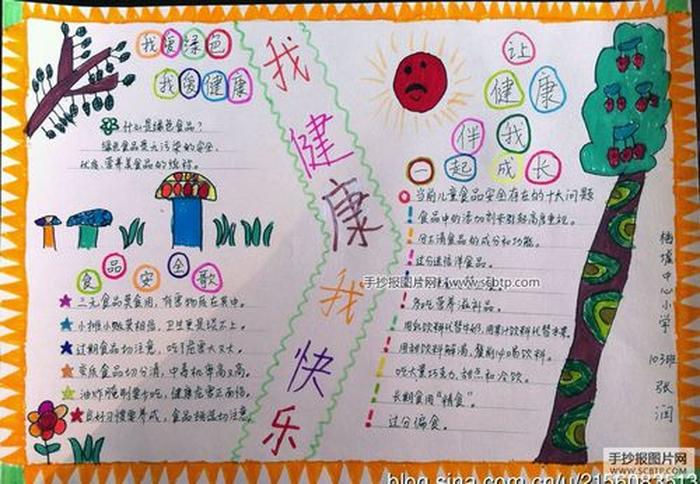 我爱绿色
我爱健康
什么是绿色食品?
绿色食品是无污染的安全、
优质、营养类食品的统称。
食品安全歌
三无食品莫食用,有害物质在其中。
小摊小贩莫相信,卫生更是谈不上。
过期食品切注意,吃了危害大又大。
变质食品切分清,中毒机率高又高。
油炸腌制要少吃,健康危害正面临。
良好习惯要养成,食品挑选切注意。
我健康我快乐
让
健康
伴我
一起成长
当前儿童食品安全存在的十大问题
食品中的添加剂未引起高度重视。
分不清食品的成分和功能。
过分迷信洋食品。
手抄报图片网 www.scbtp.com
乱吃营养滋补品。
用乳饮料代替牛奶,用果汁饮料代替水果。
用甜饮料解渴,餐前必喝饮料。
吃大量巧克力、甜点和冷饮。
长期食用“精食”。
过分偏食。
中心小学
103班
张润
手抄报图片网
WWW.SCBTP.COM
blog.sina.com.cn/u/2156083513